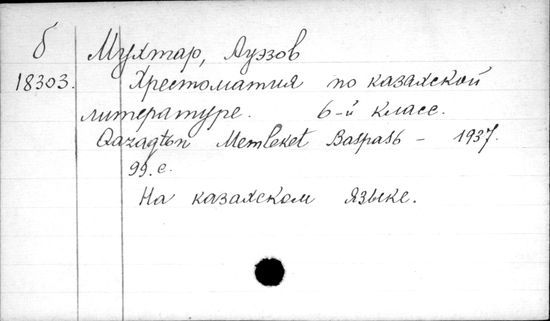 б
18303.
Мухтар, Ауэзов
Хрестоматия по казахской
литературе. 6-й класс.
Qazaqtьn Memleket Baspasь - 1937.
99. с.
На казахском языке.